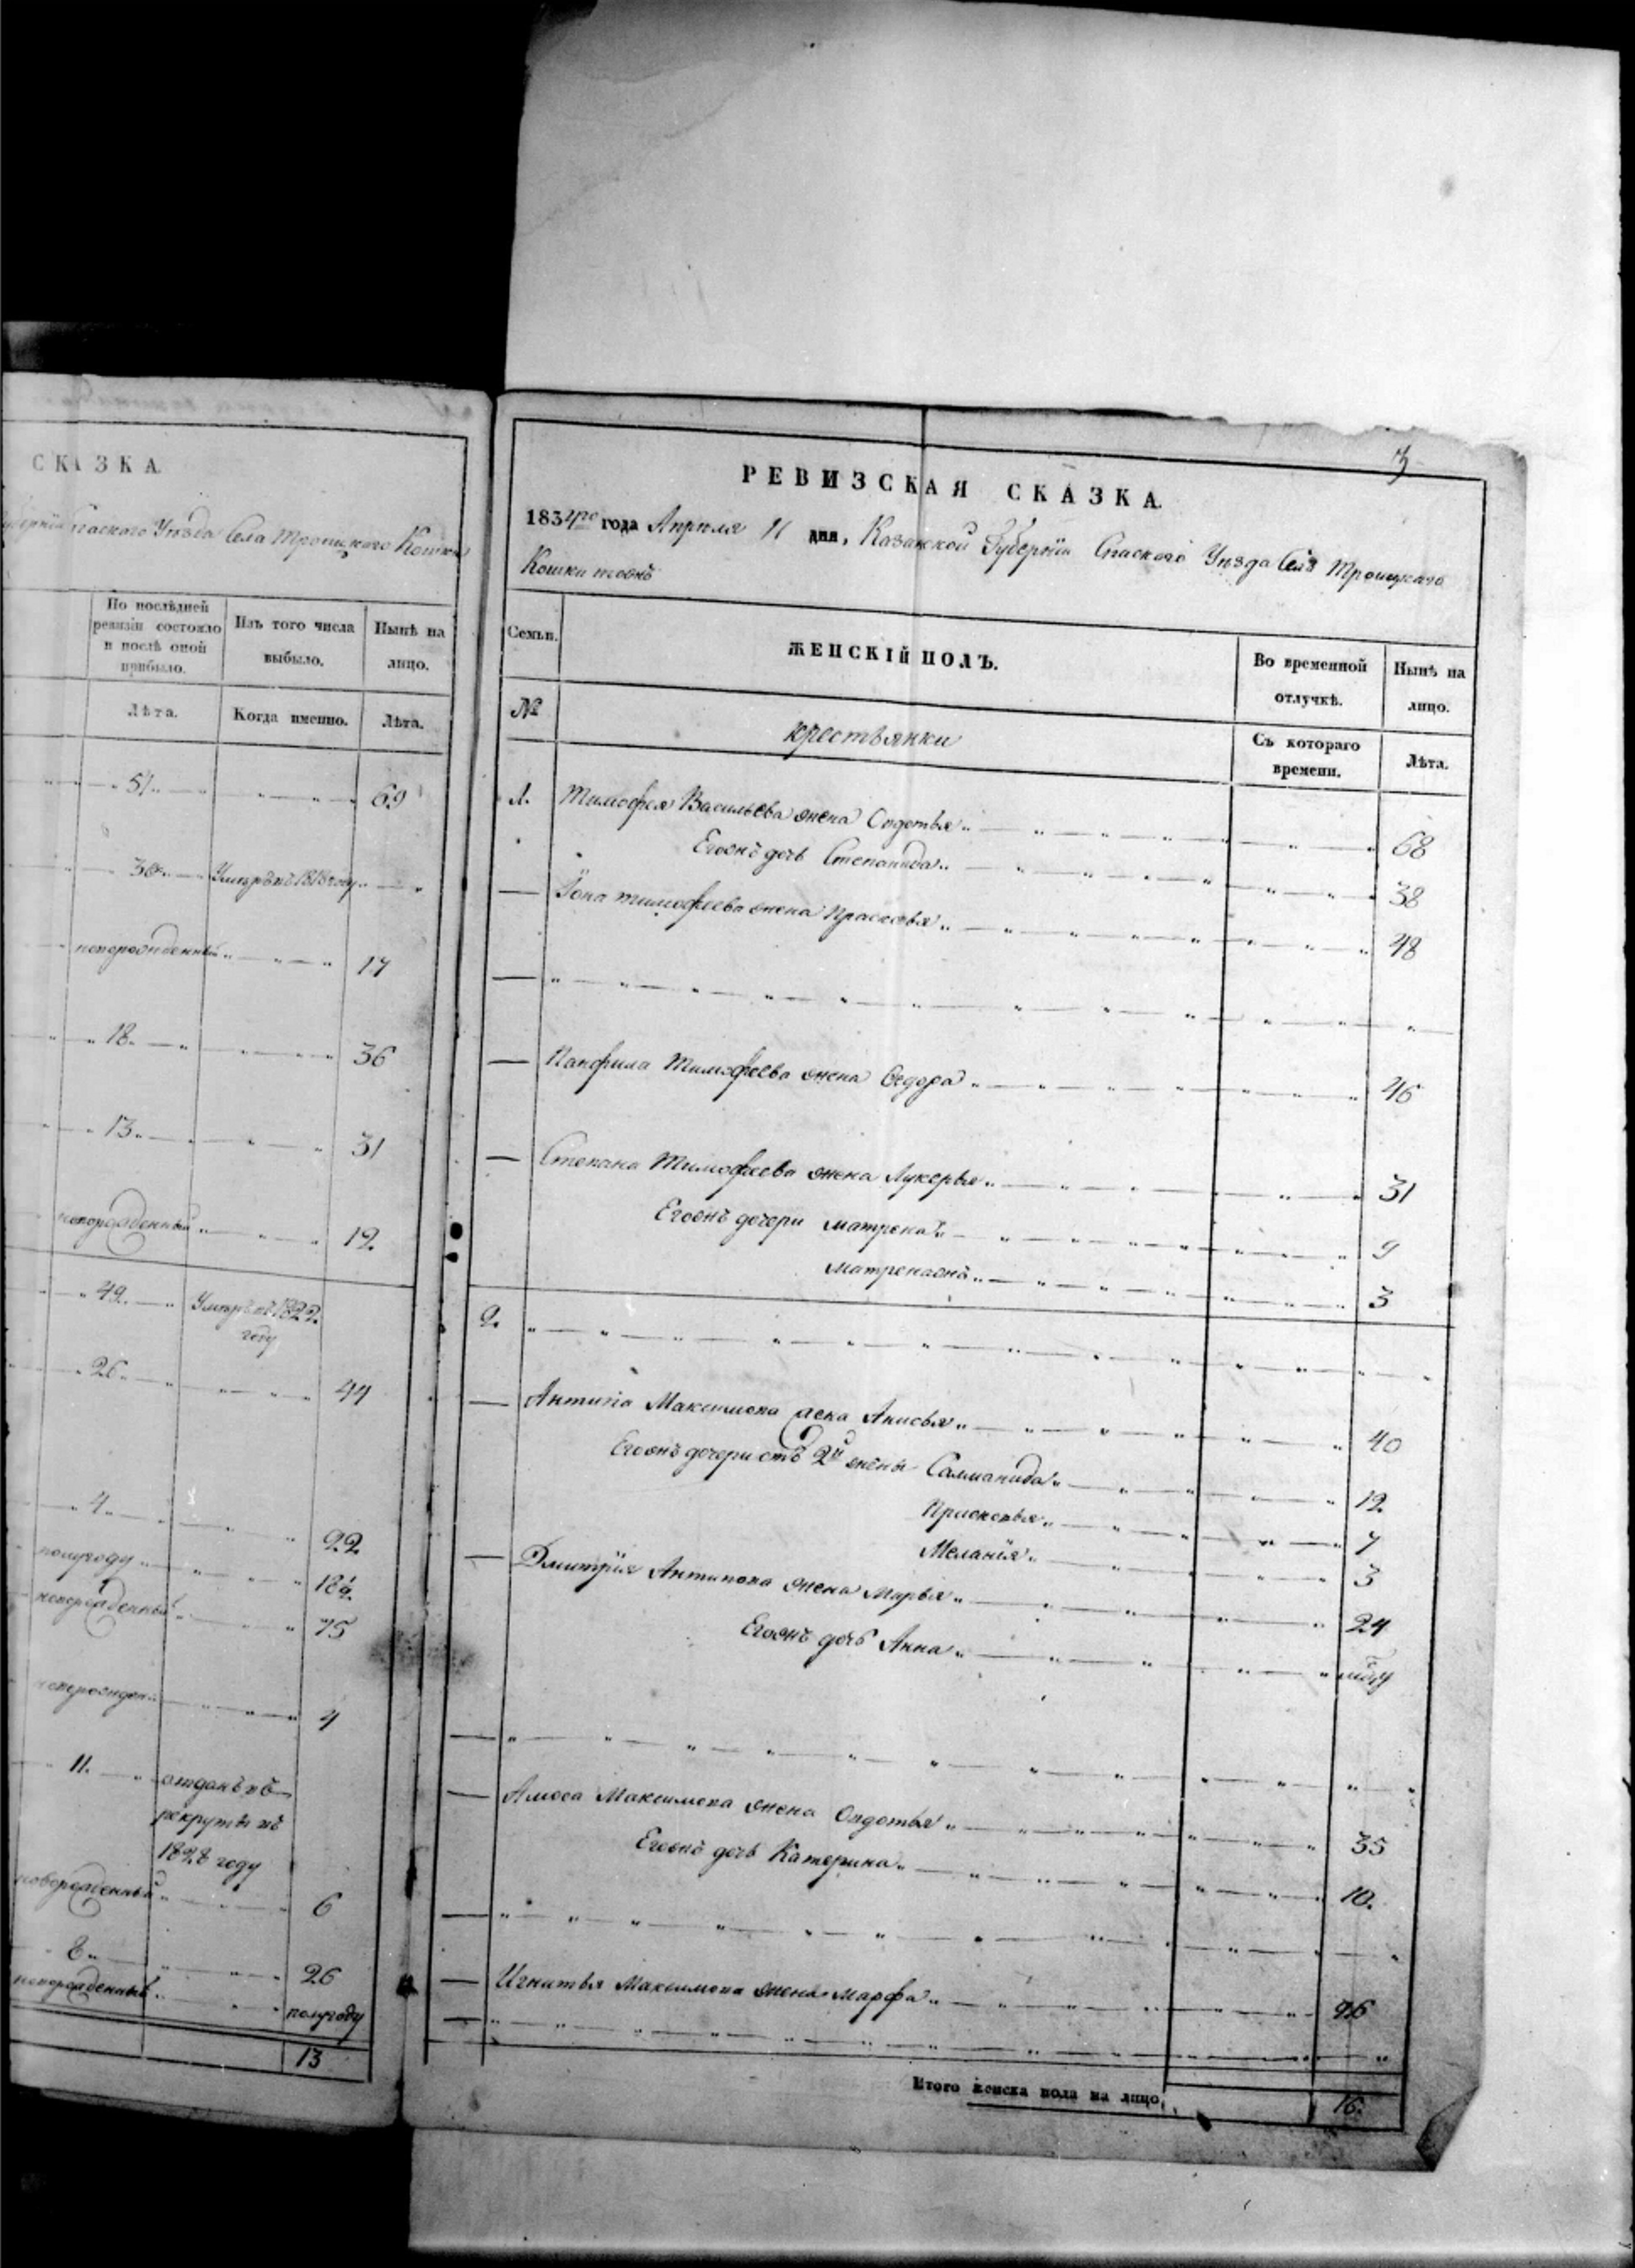 СКАЗКА.
Спаского Уѣзда Села Троицкаго Кошки
По послѣдней ревизіи состояло и послѣ оной прибыло.
Изъ того числа выбыло.
Нынѣ на лицо.
Лѣта.
Когда именно.
Лѣта.
51
69
Умпръ въ 1818 году
новорожденный
17
18.
36
13.
31
новорожденный
12.
49.
Умпръ въ 1822. году
26
44
4
22
полугоду
18½
новорожденный
15
новорожден
4
11.
отданъ въ рекруты въ 1828 году
новорожденный
6
8
26
новорожденный
полугоду
13
3
РЕВИЗСКАЯ СКАЗКА.
1834го года Апреля 11 дня, Казанской Губерніи Спаского Уѣзда Села Троицкаго
Кошки тожъ
Семьи.
ЖЕНСКІЙ ПОЛЪ.
Во временной отлучкѣ.
Нынѣ на лицо.
№
крестьянки
Съ котораго времени.
Лѣта.
1. Тимофея Васильева жена Овдотья 68
Егожъ дочь Степанида 38
Іона Тимофеева жена Прасковья 48
Панфила Тимофеева жена Федора 46
Степана Тимофеева жена Лукерья 31
Егожъ дочери Матрена 9
Матренажъ 3
2.
Антипа Максимова жена Анисья 40
Егожъ дочери отъ 2й жены Саломанида 12
Прасковья 7
Меланія 3
Дмитрія Антипова жена Марья 24
Егожъ дочь Анна
Амоса Максимова жена Овдотья 35
Егожъ дочь Катерина 10.
Игнатья Максимова жена Марфа 26
Итого женска пола на лицо 16.